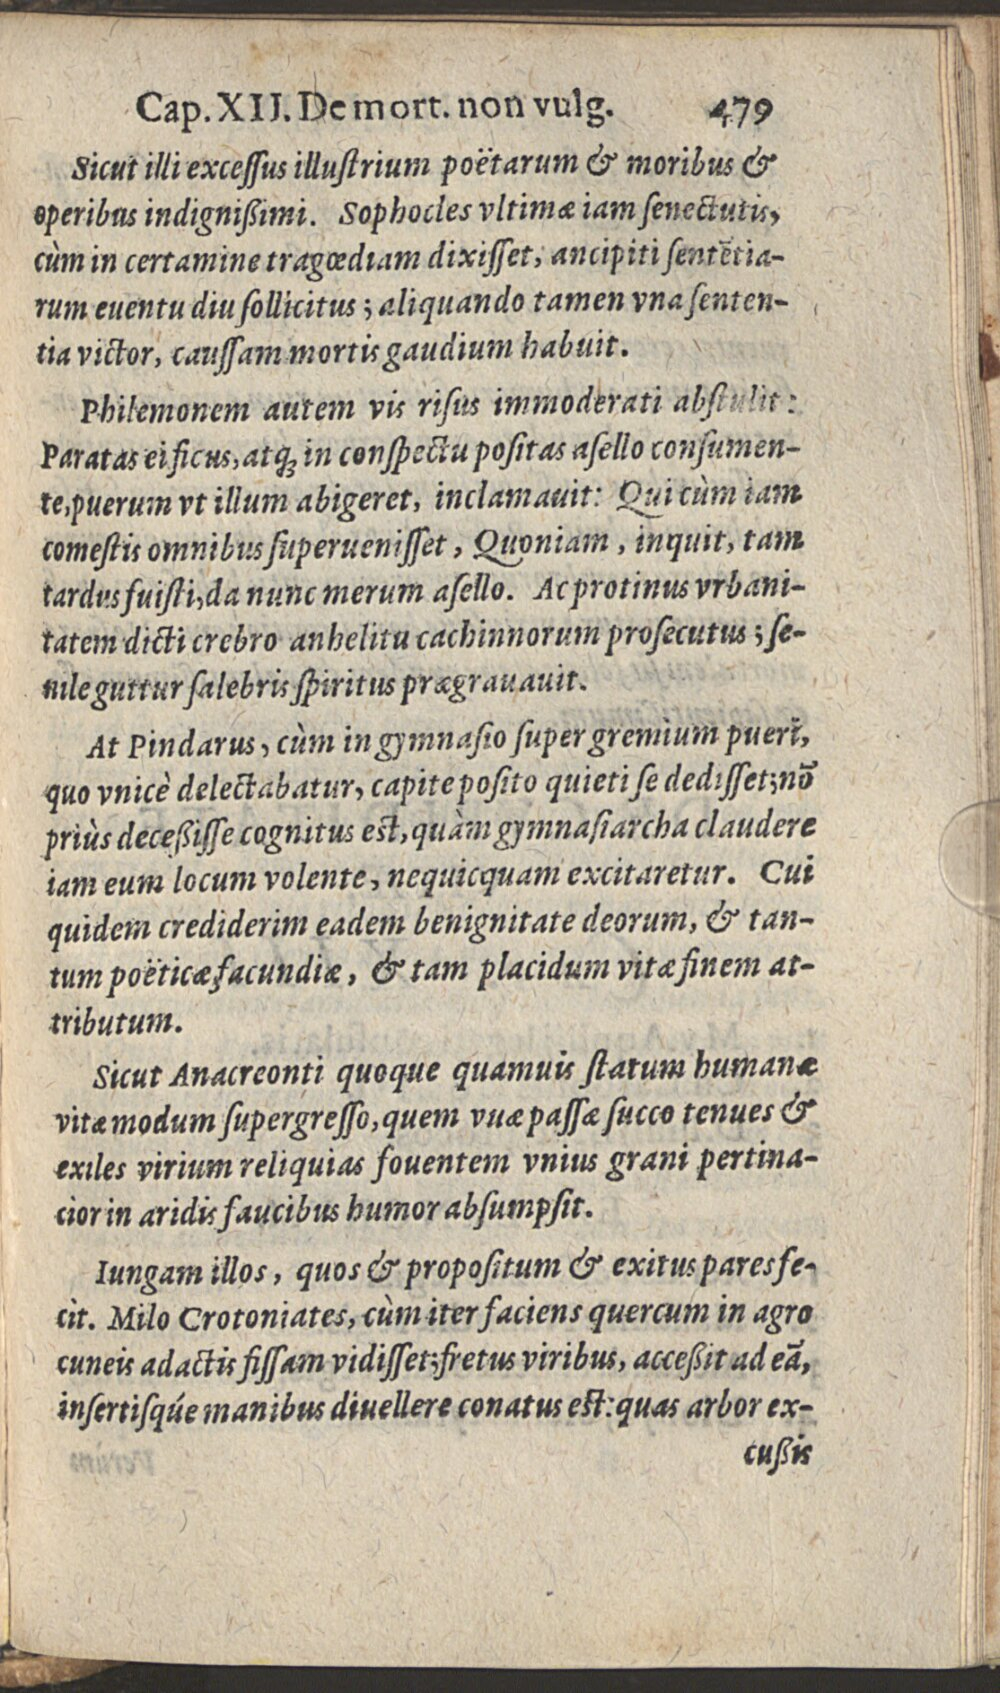 Cap. XII. De mort. non vulg. 479
Sicut illi exceſſus illuſtrium poëtarum & moribus &
operibus indignißimi. Sophocles vltimæ iam ſenectutis,
cùm in certamine tragœdiam dixiſſet, ancipiti ſentētia-
rum euentu diu ſollicitus; aliquando tamen vna ſenten-
tia victor, cauſſam mortis gaudium habuit.
Philemonem autem vis riſus immoderati abſtulit:
Paratas ei ficus, atq; in conſpectu poſitas aſello conſumen-
te, puerum vt illum abigeret, inclamauit: Qui cùm iam
comeſtis omnibus ſuperueniſſet, Quoniam, inquit, tam
tardus fuiſti, da nunc merum aſello. Ac protinus vrbani-
tatem dicti crebro anhelitu cachinnorum proſecutus; ſe-
nile guttur ſalebris ſpiritus prægrauauit.
At Pindarus, cùm in gymnaſio ſuper gremium pueri,
quo vnicè delectabatur, capite poſito quieti ſe dediſſet; nō
priùs deceßiſſe cognitus eſt, quàm gymnaſiarcha claudere
iam eum locum volente, nequicquam excitaretur. Cui
quidem crediderim eadem benignitate deorum, & tan-
tum poëticæ facundiæ, & tam placidum vitæ finem at-
tributum.
Sicut Anacreonti quoque quamuis ſtatum humanæ
vitæ modum ſupergreſſo, quem vuæ paſſæ ſucco tenues &
exiles virium reliquias fouentem vnius grani pertina-
cior in aridis faucibus humor abſumpſit.
Iungam illos, quos & propoſitum & exitus pares fe-
cit. Milo Crotoniates, cùm iter faciens quercum in agro
cuneis adactis fiſſam vidiſſet; fretus viribus, acceßit ad eā,
inſertiſqúe manibus diuellere conatus eſt: quas arbor ex-
cußis